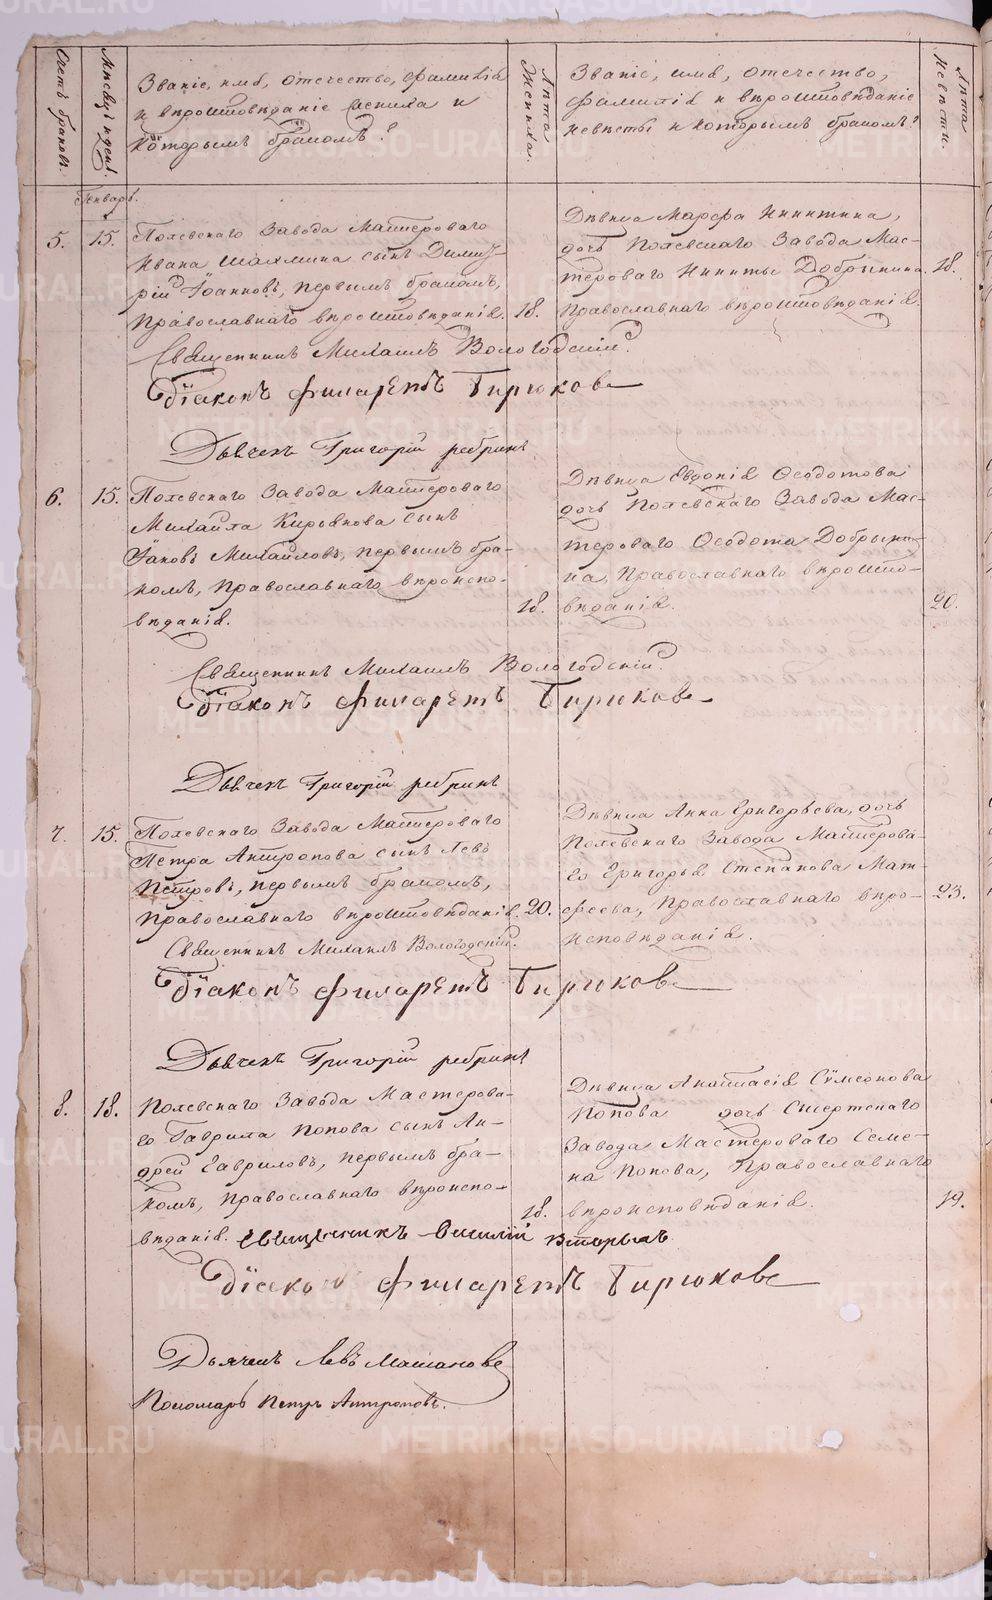 Счетъ браковъ.
Мѣсяцъ и день.
Званіе, имя, отечество, фамилія
и вѣроисповѣданіе жениха и
которымъ бракомъ?
Лѣта жениха.
Званіе, имя, отечество,
фамилія и вѣроисповѣданіе
невѣсты и которымъ бракомъ?
Лѣта невѣсты.
Генварь.
5. 15. Полевскаго Завода Мастероваго
Ивана Шахмина сынъ Димит-
рій Іоанновъ, первымъ бракомъ,
Православнаго вѣроисповѣданія. 18.
Дѣвица Марфа Никитина,
дочь Полевскаго Завода Мас-
тероваго Никиты Добрынина 18.
Православнаго вѣроисповѣданія.
Священникъ Михаилъ Вологодскій.
Діаконъ Филаретъ Бирюковъ
Дьячекъ Григорій
6. 15. Полевскаго Завода Мастероваго
Михайла Кирьякова сынъ
Іаковъ Михайловъ, первымъ бра-
комъ, Православнаго вѣроиспо-
вѣданія. 18.
Дѣвица Евдокія Ѳеодотова
дочь Полевскаго Завода Мас-
тероваго Ѳеодота Добрыни-
на, Православнаго вѣроиспо-
вѣданія. 20.
Священникъ Михаилъ Вологодскій.
Діаконъ Филаретъ Бирюковъ
Дьячекъ Григорій
7. 15. Полевскаго Завода Мастероваго
Петра Антропова сынъ Левъ
Петровъ, первымъ бракомъ,
Православнаго вѣроисповѣданія. 20.
Дѣвица Анна Григорьева, дочь
Полевскаго Завода Мастерова-
го Григорья Степанова Мат-
феева, Православнаго вѣро- 23.
исповѣданія.
Священникъ Михаилъ Вологодскій.
Діаконъ Филаретъ Бирюковъ
Дьячекъ Григорій
8. 18. Полевскаго Завода Мастерова-
го Гаврила Попова сынъ Ан-
дрей Гавриловъ, первымъ бра-
комъ, Православнаго вѣроиспо-
вѣданія. 18.
Дѣвица Анастасія Сѵмеонова
Попова дочь Сысертскаго
Завода Мастероваго Семе-
на Попова, Православнаго
вѣроисповѣданія. 19.
Священникъ
Діаконъ Филаретъ Бирюковъ
Дьячекъ Левъ
Пономарь Петръ Антроповъ.
METRIKI.GASO-URAL.RU